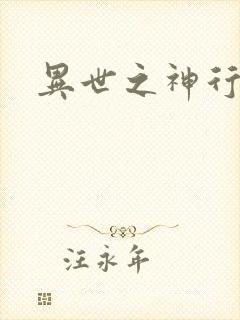 異世之神行
汪永年